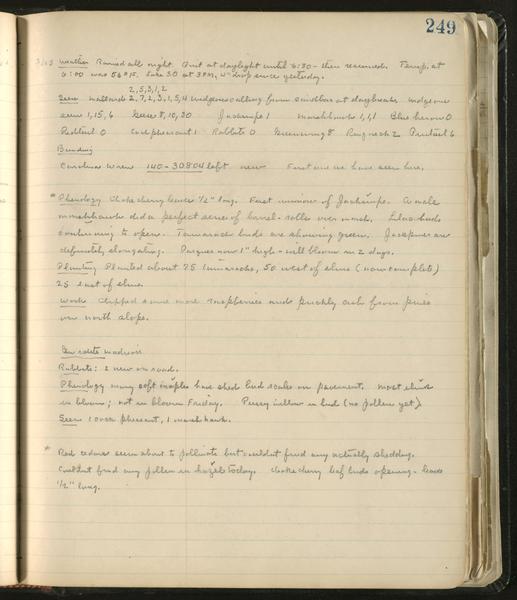 249
Weather Rained all night. Quit at daylight until 6:30 - then resumed. Temp. at
6:00 was 56 Lake 30 at 3 PM, 4" drop since yesterday.
2,5,3,1,2
Seen mallards 2,7,2,3,1,5,4 widgeons calling from sandbar at daybreak. widgeon
seen 1,15,6 Geese 8,10,30 Jacksnipe 1 Marsh hawk 1,1,1 Blue heron 0
Redtail 0 Cock pheasant 1 Rabbits 0 Greenwing 8 Ringneck 2 Pintail 6
Banding
Carolina wren 140-30804 left new First one we have seen here.
* Phenology Choke cherry leaves 1/2" long. First winnow of Jacksnipe. A male
marsh hawk did a perfect series of barrel-rolls over marsh. Lilac buds
continuing to open. Tamarack buds are showing green. Jackpines are
definitely elongating. Pasques now 1" high - will bloom in 2 days.
Planting Planted about 75 tamaracks, 50 west of slough (now complete)
25 east of slough.
Work Clipped some more raspberries and prickly ash from pines
on north slope.
En route Madison
Rabbits: 2 new on road.
Phenology many soft maples have shed bud scales on pavement. Most elms
in bloom; not in bloom Friday. Pussy willow in bud (no pollen yet).
Seen 1 hen pheasant, 1 marsh hawk.
* Red cedars seem about to pollinate but couldn't find any actually shedding.
Couldn't find any pollen in hazel today. Choke cherry leaf buds opening - leaves
1/2" long.